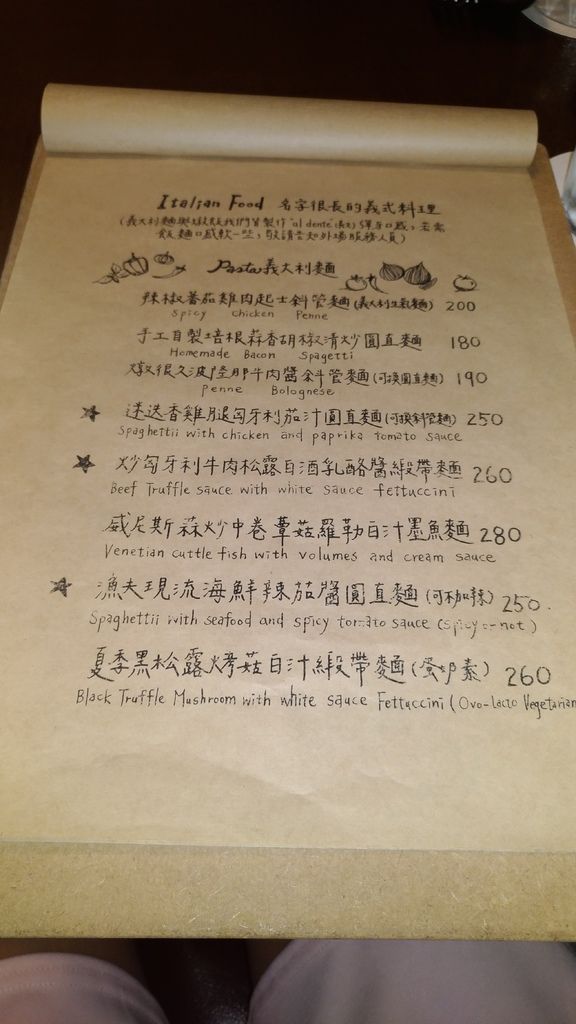 Italian Food 名字很長的義式料理
(義大利麵與燉飯我們皆製作"al dente"彈牙口感,若需
飯麵口感軟一些,敬請告知外場服務人員)
Pasta 義大利麵
辣椒蕃茄雞肉起士斜管麵(義大利生氣麵) 200
Spicy chicken Penne
手工自製培根蒜香胡椒清炒圓直麵 180
Homemade Bacon Spagetti
燉很久波隆那牛肉醬斜管麵(可換圓直麵) 190
Penne Bolognese
★ 迷迭香雞腿匈牙利茄汁圓直麵(可換斜管麵) 250
Spaghettii with chicken and paprika tomato sauce
★ 炒匈牙利牛肉松露白酒乳酪醬緞帶麵 260
Beef Truffle sauce with white sauce fettuccini
威尼斯蒜炒中卷蕈菇羅勒白汁墨魚麵 280
Venetian cuttle fish with volumes and cream sauce
★ 漁夫現流海鮮辣茄醬圓直麵(可不加辣) 250.
Spaghettii with seafood and spicy tomato sauce (spicy or not)
夏季黑松露烤菇白汁緞帶麵(蛋奶素) 260
Black Truffle Mushroom with white sauce Fettuccini (Ovo-Lacto Vegetarian